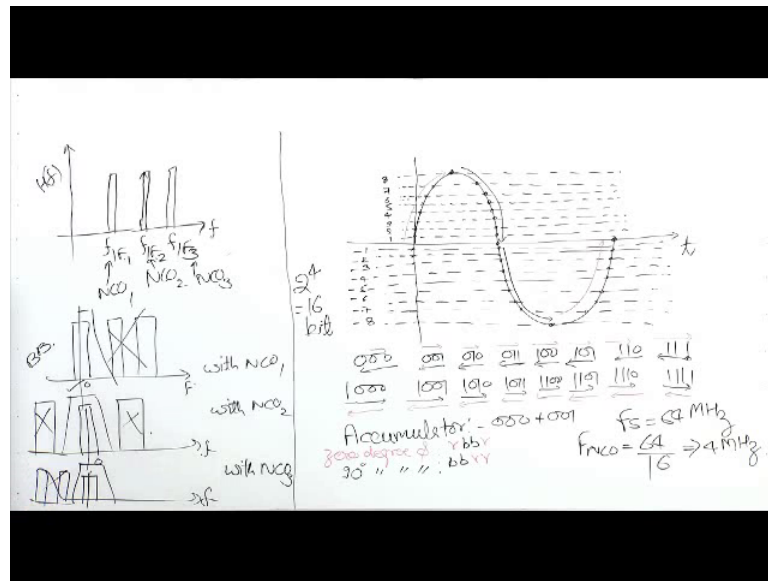 H(f)
f
fIF1 fIF2 fIF3
NCO1 NCO2 NCO3
BB.
with NCO1
f
with NCO2
f
with NCO3
f
8
7
6
5
4
3
2
1
-1
-2
-3
-4
-5
-6
-7
-8
t
2^4
=16
bit
000 001 010 011 100 101 110 111
1000 1001 1010 1011 1100 1101 1110 1111
Accumulator:- 000 + 001
zero degree φ r b b r
90° " " " : b b r r
fs = 64 MHz
FNCO = 64/16 ⇒ 4 MHz.